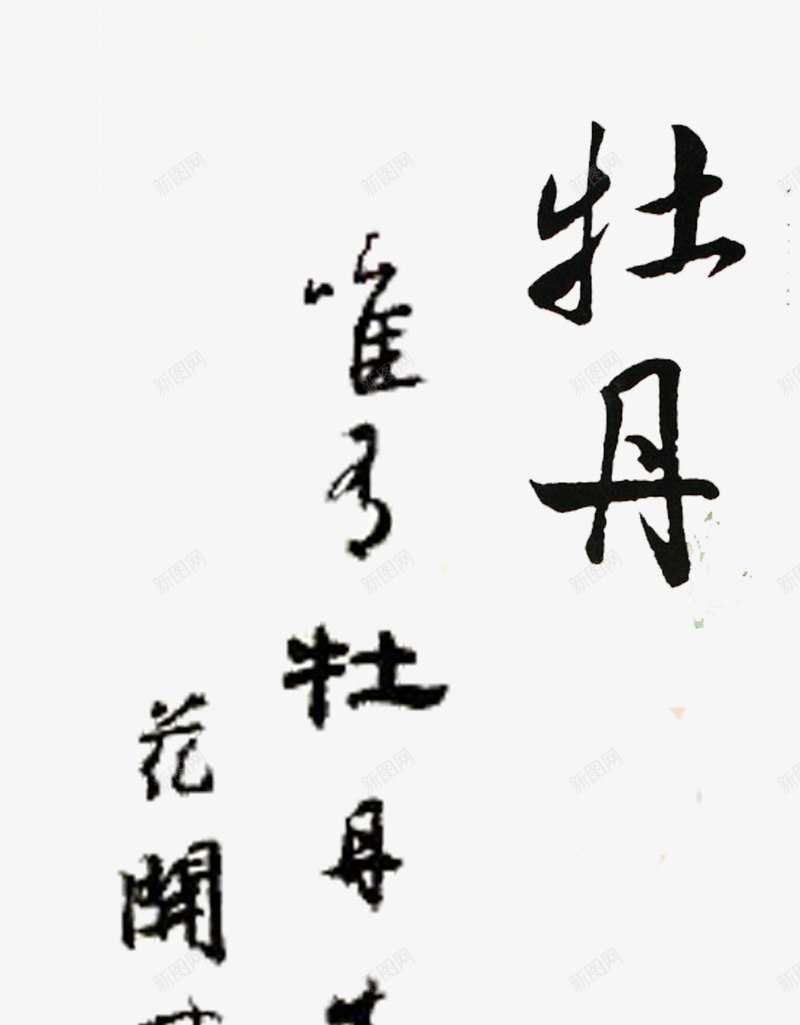 牡丹
唯有牡丹
花開
新图网